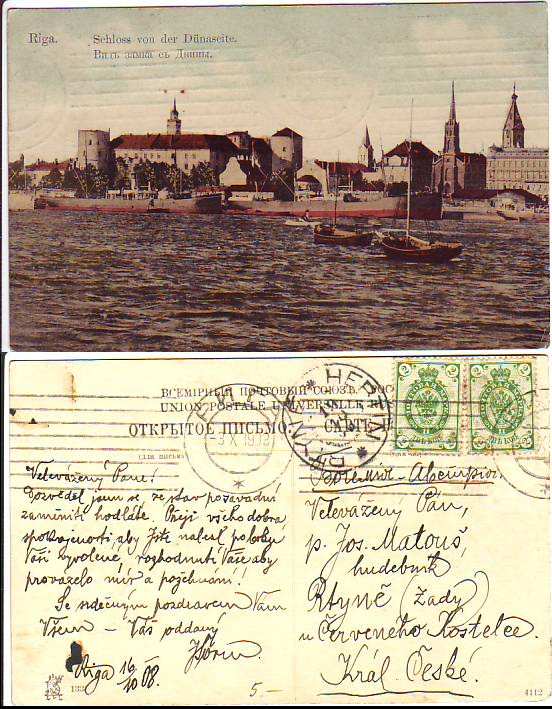 Riga. Schloss von der Dünaseite.
Видъ замка съ Двины.
ВСЕМІРНЫЙ ПОЧТОВЫЙ СОЮЗЪ. РОС
UNION POSTALE UNIVERSELLE. RUS
ОТКРЫТОЕ ПИСЬМО. CARTE
-3 X 19
2 2
2 2
Velevážený Pane!
Dozvěděl jsem se, že stav posavadní
zaměniti hodláte. Přeji všeho dobra,
spokojenosti, aby Jste nalezl po boku
Vaší vyvolené, rozhodnutí Vaše aby
provázelo mír a požehnání!
Se srdečným pozdravem Vám
Všem – Váš oddaný
Riga 16/10 08.
Velevážený Pán,
p. Jos. Matouš,
hudebník
Rtyně (Zády)
u Červeného Kostelce.
Král. České.
5.-
4112